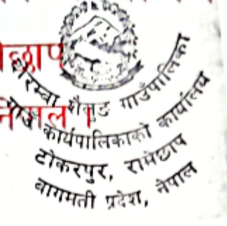 गोरम्बा शैलुङ गाउँपालिका
गाउँ कार्यपालिकाको कार्यालय
टोकरपुर, रामेछाप
बागमती प्रदेश, नेपाल